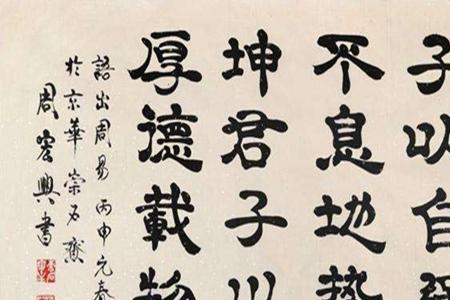 子以自强
不息地势
坤君子以
厚德載物
語出周易丙申元春
於京華崇齋
周宏興書